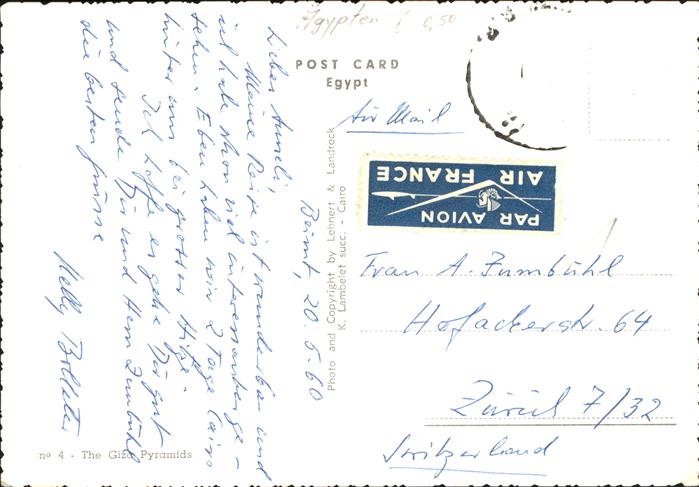 Ägypten £ 0,50
POST CARD
Egypt
Air Mail
PAR AVION
AIR FRANCE
Beirut, 20.5.60
Liebes Anneli,
Meine Reise ist wunderbar und
ich habe schon viel interessantes ge-
sehen. Eben haben wir 2 Tage Cairo
hinter uns bei grosser Hitze.
Ich hoffe es gehe Dir gut
und sende Dir und Herr Zumbühl
die besten Grüsse
Nelly
Photo and Copyright by Lehnert & Landrock
K. Lambelet succ. - Cairo
Frau A. Zumbühl
Hofackerstr. 64
Zürich 7/32
Switzerland
nº 4 - The Giza Pyramids